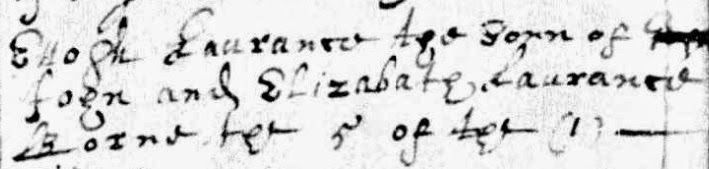 Enogh Laurance the Sonn of
John and Elizabath Laurance
Borne the 5 of the (1)